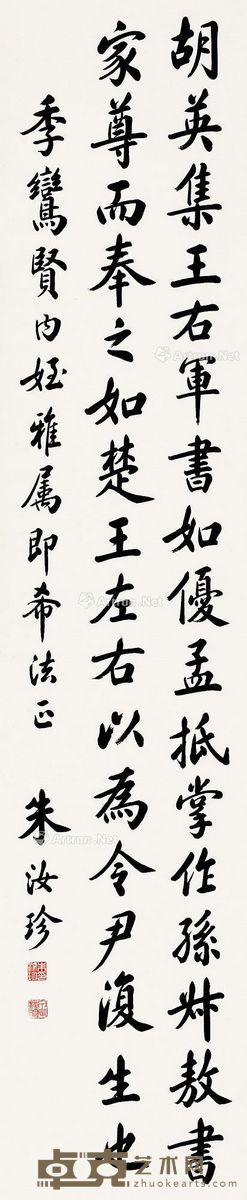 胡英集王右軍書如優孟抵掌作孫叔敖書
家尊而奉之如楚王左右以為令尹復生也
季鸞賢内姪雅属即希法正
朱汝珍
Artron.Net
Artron.Net
Artron.Net
Artron.Net
卓克艺术网
zhuokearts.com